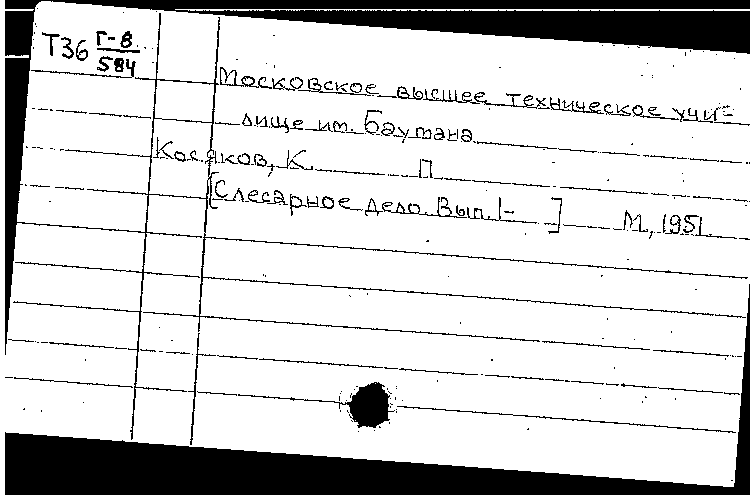 Т36 Г-8
584
Московское высшее техническое учи-
лище им. Баумана
Косяков, К. П
[Слесарное дело. Вып. 1- ] М., 1951.